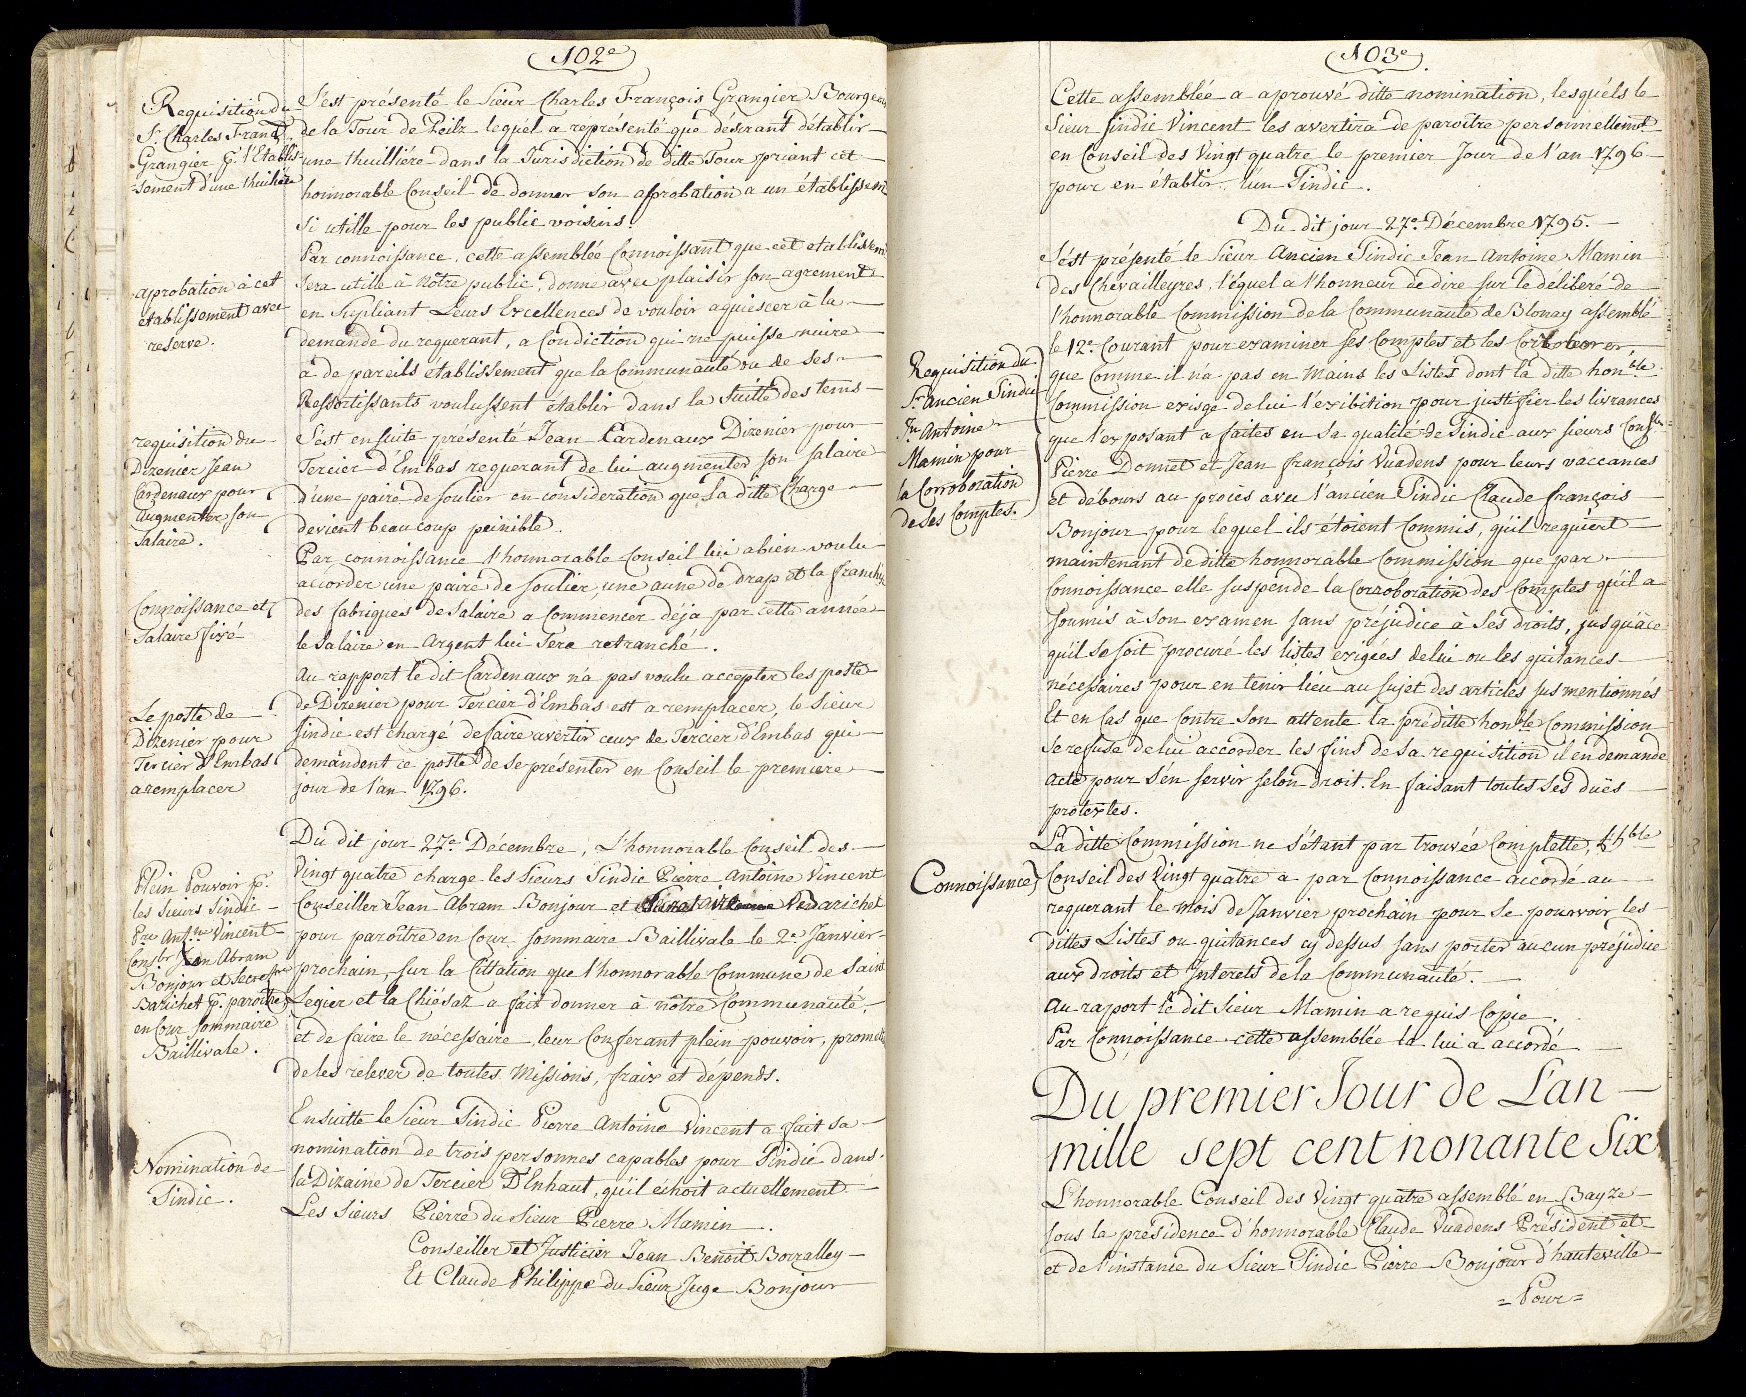 102e
Requisition du
Sr. Charles Franç.
Grangier pr. l'Etablis-
-sement d'une thuilière
S'est présenté le Sieur Charles François Grangier Bourgeois
de la Tour de Peilz lequel a représenté que désirant d'établir
une thuillière dans la Jurisdiction de ditte Tour priant cet
honnorable Conseil de donner son aprobation a un établissemt
si utille pour les public voisins.
aprobation à cet
etablissement avec
reserve.
Par connoissance, cette assemblée Connoissant que cet etablissemt
sera utile à nôtre public, donne avec plaisir son agrement
en Supliant Leurs Excellences de vouloir aquiescer à la
demande du requerant, a Condiction qui ne puisse nuire
à de pareils établissement que la Communauté ou de ses
Ressortissants voulussent établir dans la Suitte des tems
requisition du
Dizenier Jean
Cardenaux pour
augmenter son
Salaire.
S'est ensuite présenté Jean Cardenaux Dizenier pour
Tercier d'Embas requerant de lui augmenter son salaire
d'une paire de soulier en consideration que sa ditte Charge
devient beaucoup peinible.
Connoissance et
Salaire fixé
Par connoissance l'honnorable Conseil lui a bien voulu
accorder une paire de soulier, une aune de drap et la franchise
des fabriques de Salaire a Commencer déja par cette année
le Salaire en Argent lui Sera retranché.
Le poste de
Dizenier pour
Tercier d'Embas
a remplacer
Au rapport le dit Cardenaux n'a pas voulu accepter les poste
de Dizenier pour Tercier d'Embas est a remplacer, le Sieur
Sindic est chargé de faire avertir ceux de Tercier d'Embas qui
demandent ce poste de se présenter en Conseil le premiere
jour de l'an 1796.
Plein Pouvoir pr.
les Sieurs Sindic
Pre Antne Vincent
Consler Jean Abram
Bonjour et Secretre
Barichet pr. paroitre
en Cour Sommaire
Baillivale.
Du dit jour 27e. Décembre, L'honnorable Conseil des
Vingt quatre charge les Sieurs Sindic Pierre Antoine Vincent
Conseiller Jean Abram Bonjour et Barichet
pour paroître en Cour Sommaire Baillivale le 2e Janvier
prochain, sur la Cittation que l'honnorable Commune de Saint
Legier et la Chiésaz a fait donner à nôtre Communauté,
et de faire le nécessaire, leur Conferant plein pouvoir, promet
de les relever de toutes Missions, fraix et dépends.
Nomination de
Sindic.
Ensuitte le Sieur Sindic Pierre Antoine Vincent a fait sa
nomination de trois personnes capables pour Sindic dans
la Dizaine de Tercier D'Enhaut, qu'il échoit actuellement
Les Sieurs Pierre du Sieur Pierre Mamin.
Conseiller et Justicier Jean Benoit Borralley
Et Claude Philippe du Sieur Juge Bonjour
103e.
Cette assemblée a aprouvé ditte nomination, lesquels le
Sieur Sindic Vincent les avertira de paroître personnellemt
en Conseil des Vingt quatre le premier Jour de l'an 1796
pour en établir l'un Sindic.
Du dit jour 27e. Décembre 1795.
Requisition du
Sr. ancien Sindic
Jn Antoine
Mamin pour
la Corroboration
de ses Comptes.
S'ést présenté le Sieur Ancien Sindic Jean Antoine Mamin
des Chevailleyres, léquel a l'honneur de dire sur le deliberé de
l'honnorable Commission de la Communauté de Blonay assemblé
le 12e. Courant pour examiner ses Comptes et les Corroborer
que Comme il n'a pas en mains les Listes dont la ditte honble.
Commission exige de lui l'exibition pour justifier les livrances
que l'exposant a faites en sa qualité de Sindic aux sieurs Consler
Pierre Donnet et Jean François Vuadens pour leurs vaccances
et débours au procès avec l'ancien Sindic Claude François
Bonjour pour lequel ils étoient Commis, qu'il requiert
maintenant de ditte honnorable Commission que par
Connoissance elle suspende la Corroboration des Comptes qu'il a
soumis à son examen sans préjudice à Ses droits, jusqu'àce
qu'il se soit procuré les listes exigées de lui ou les quitances
nécessaires pour en tenir lieu au sujet des articles sus mentionnés
Et en Cas que Contre Son attente la préditte honble Commission
se refuse de lui accorder les fins de sa requisition il en demande
acte pour s'en servir selon droit. En faisant toutes Ses duës
protextes.
Connoissance
La ditte Commission ne s'étant par trouvée Complette, L'hble
Conseil des Vingt quatre a par Connoissance accordé au
requerant le mois de Janvier prochain pour se pourvoir les
dittes Listes ou quitances cy dessus sans porter aucun préjudice
aux droits et Interets de la Communauté.
Au rapport le dit Sieur Mamin a requis Copie.
Par Connoissance cette assemblée la lui a accordé
Du premier Jour de L'an
mille sept cent nonante Six
L'honnorable Conseil des Vingt quatre assemblé en Bayze
sous la présidence d'honnorable Claude Vuadens Président et
et de l'instance du Sieur Sindic Pierre Bonjour d'hauteville
= Pour =